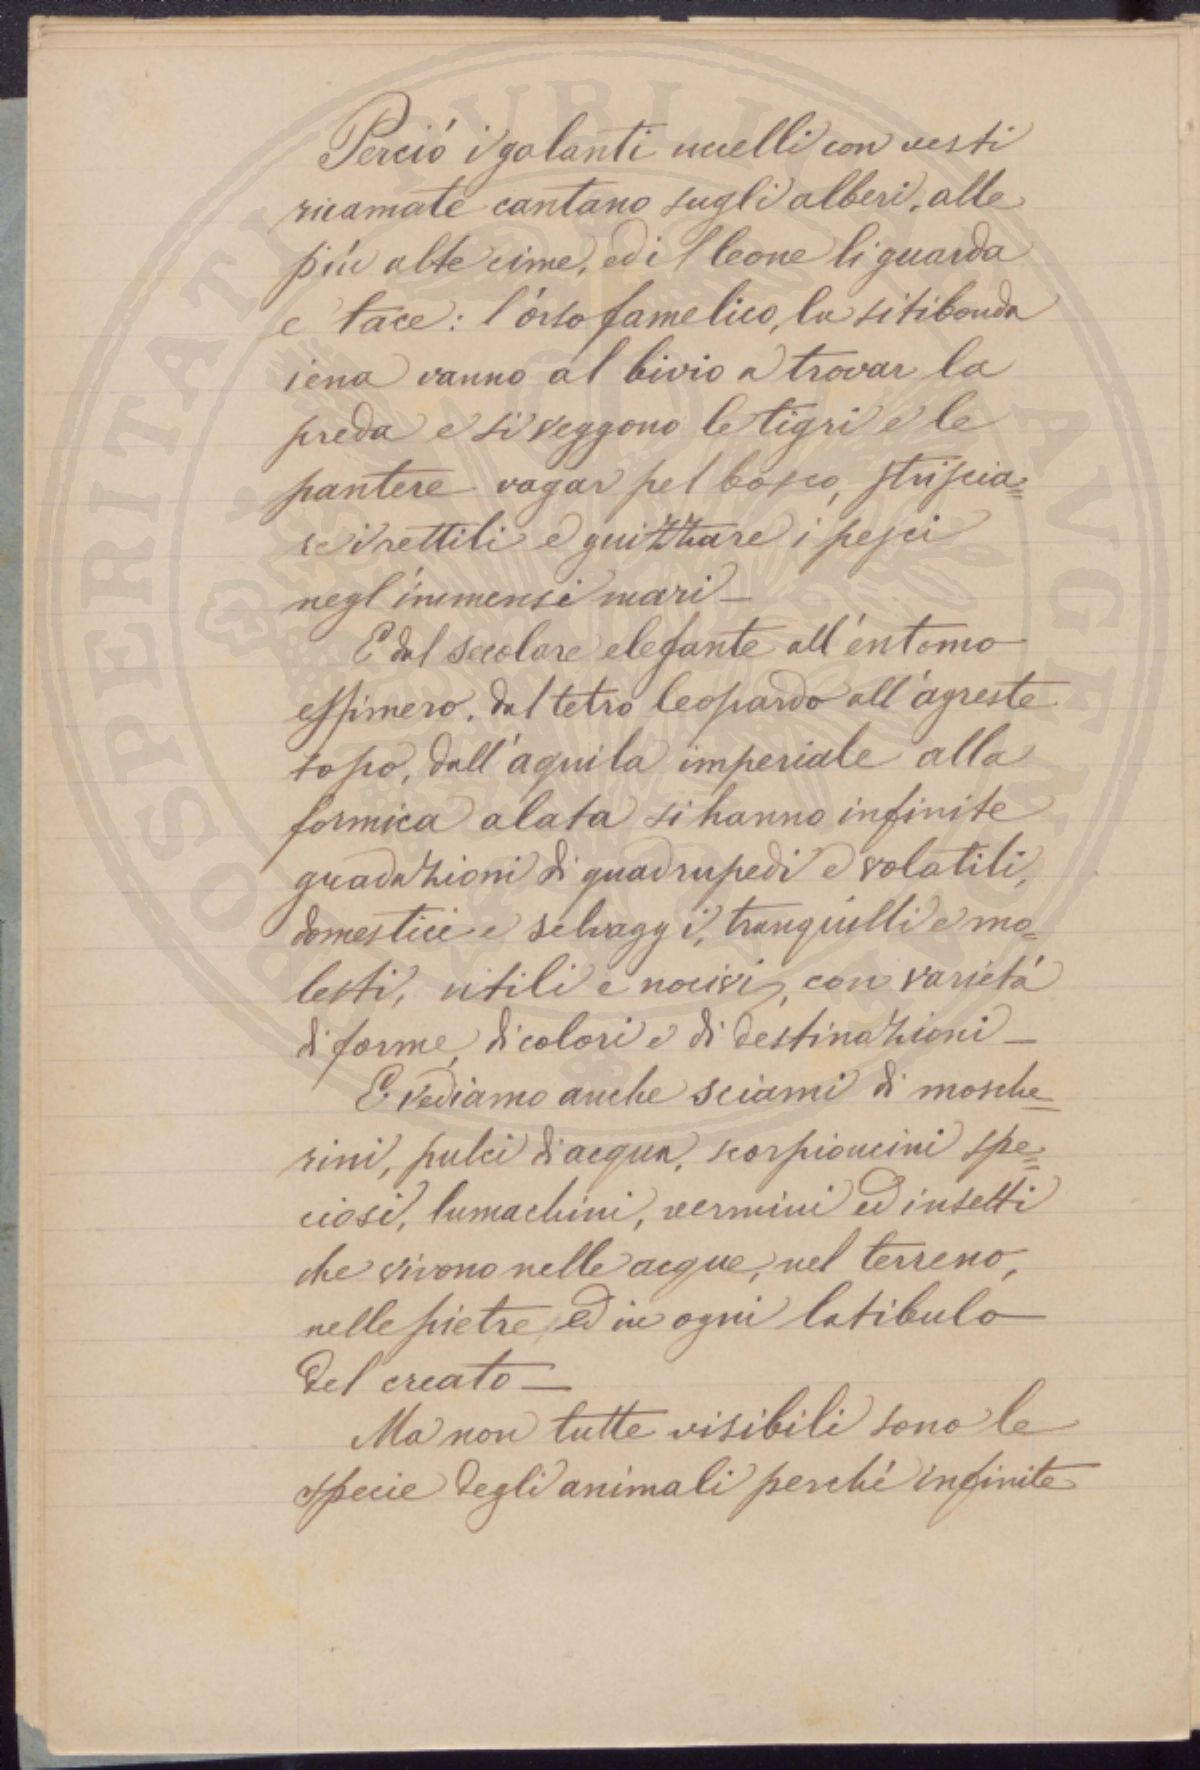 Perció i galanti uccelli con vesti
ricamate cantano sugli alberi, alle
più alte cime, ed il leone li guarda
e tace: l'orso famelico, la sitibonda
iena vanno al bivio a trovar la
preda e si veggono le tigri e le
pantere vagar pel bosco, striscia=
re i rettili e guizzare i pesci
negl'immensi mari —
E dal secolare elefante all'entomo
effimero, dal tetro leopardo all'agreste
topo, dall'aquila imperiale alla
formica alata si hanno infinite
gradazioni di quadrupedi e volatili,
domestici e selvaggi, tranquilli e mo=
lesti, utili e nocivi, con varietá
di forme, di colori e di destinazioni —
E vediamo anche sciami di mosche=
rini, pulci di acqua, scorpioncini spe=
ciosi, lumachini, vermini ed insetti
che vivono nelle acque, nel terreno,
nelle pietre, ed in ogni latibulo
del creato —
Ma non tutte visibili sono le
specie degli animali perché infinite